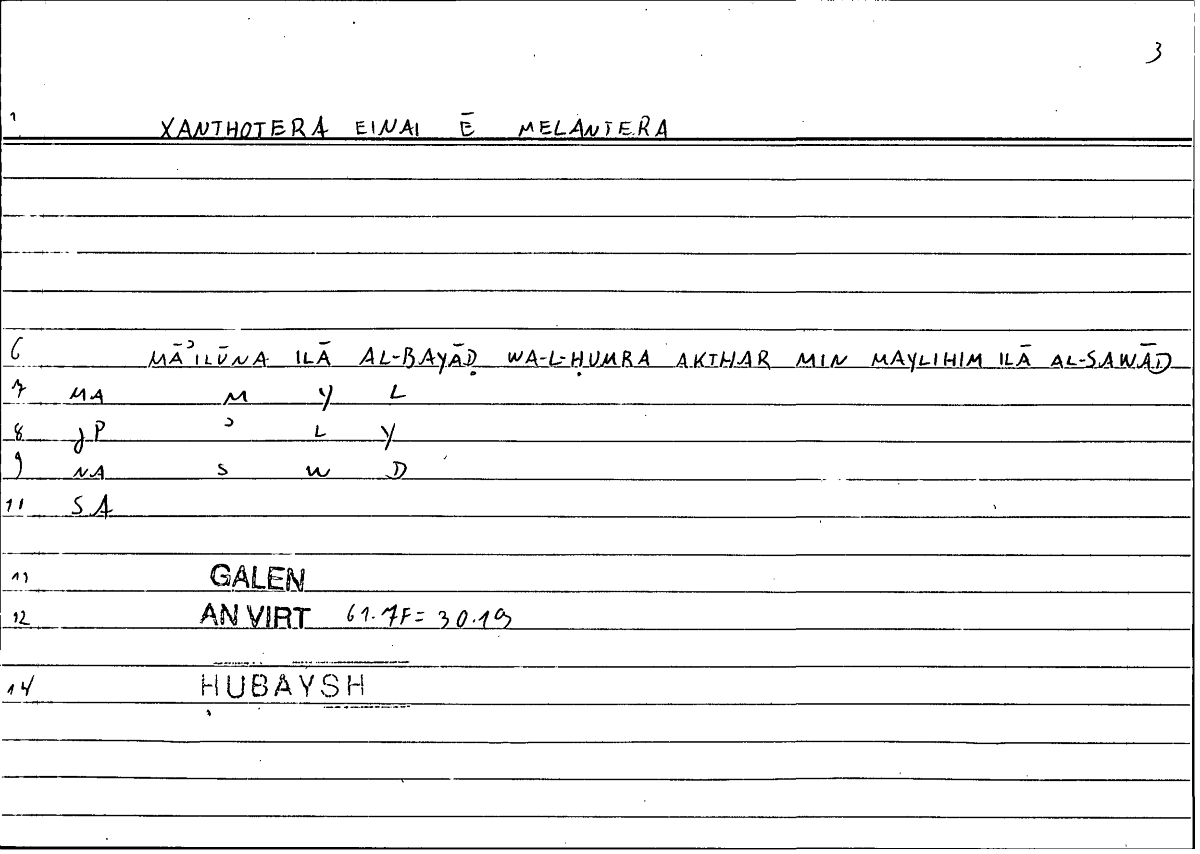 3
1 XANTHOTERA EINAI Ē MELANTERA
6 MĀʾILŪNA ILĀ AL-BAYĀḌ WA-L-ḤUMRA AKTHAR MIN MAYLIHIM ILĀ AL-SAWĀD
7 MA M Y L
8 JP ʾ L Y
9 NA S W D
11 SA
11 GALEN
12 AN VIRT 61.7F = 30.19
14 ḤUBAYSH